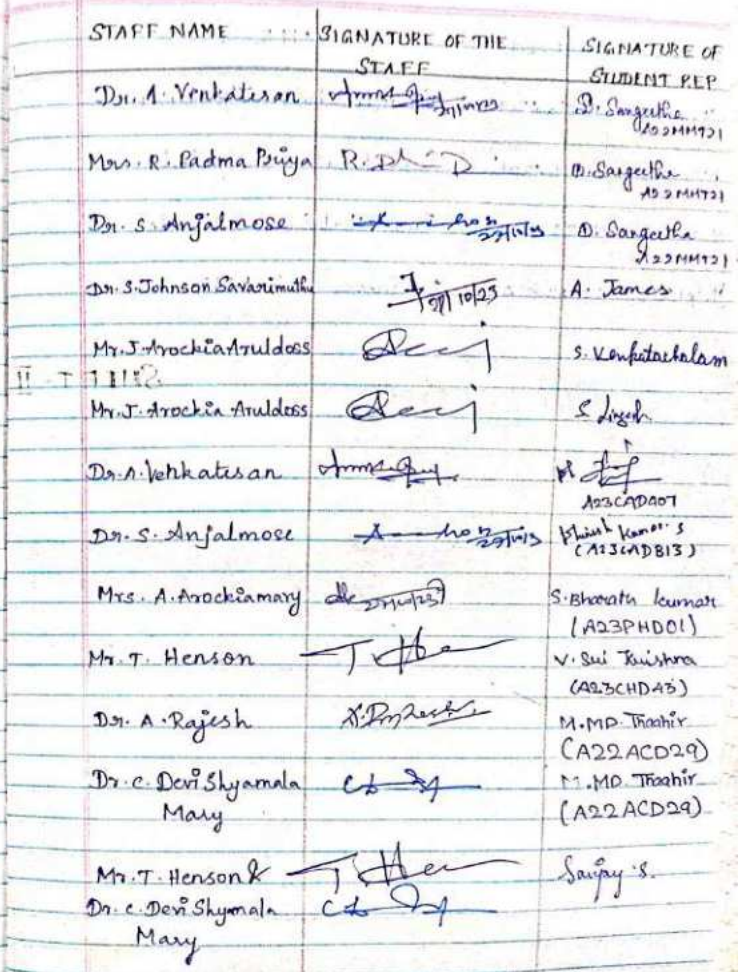 STAFF NAME SIGNATURE OF THE STAFF SIGNATURE OF STUDENT REP
Dr. A. Venkatesan 27/10/23 D. Sangeetha
A22MMT21
Mrs. R. Padma Priya R. D. Sangeetha
A22MMT21
Dr. S. Anjalmose 27/10/23 D. Sangeetha
A22MMT21
Dr. S. Johnson Savarimuthu 27/10/23 A. James
Mr. J. Arockia Aruldoss S. Venkatachalam
Mr. J. Arockia Aruldoss S
Dr. A. Venkatesan
A23CAD007
Dr. S. Anjalmose 27/10/23 Kumar. S
(A23CADB13)
Mrs. A. Arockiamary 27/10/23 S. Bharath kumar
(A23PHD01)
Mr. T. Henson V. Sri Krishna
(A23CHD43)
Dr. A. Rajesh M. MD. Thaahir
(A22ACD29)
Dr. C. Devi Shyamala M. MD. Thaahir
Mary (A22ACD29)
Mr. T. Henson & Sanjay. S.
Dr. C. Devi Shyamala
Mary